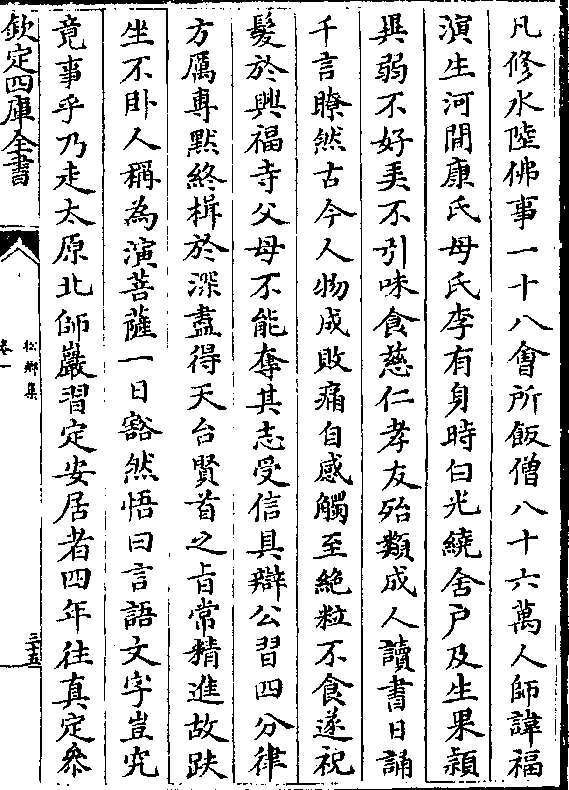 凡修水陸佛事一十八會所飯僧八十六萬人師諱福
演生河間康氏母氏李有身時白光繞舍戶及生果穎
異弱不好弄不引味食慈仁孝友殆類成人讀書日誦
千言瞭然古今人物成敗痛自感觸至絶粒不食遂祝
髮於興福寺父母不能奪其志受信具辯公習四分律
方厲專默終楫於深盡得天台賢首之㫖常精進故趺
坐不卧人稱為演菩薩一日豁然悟曰言語文字豈究
竟事乎乃走太原北師巖習定安居者四年往真定叅
欽定四庫全書
松鄉集
卷一
三十五